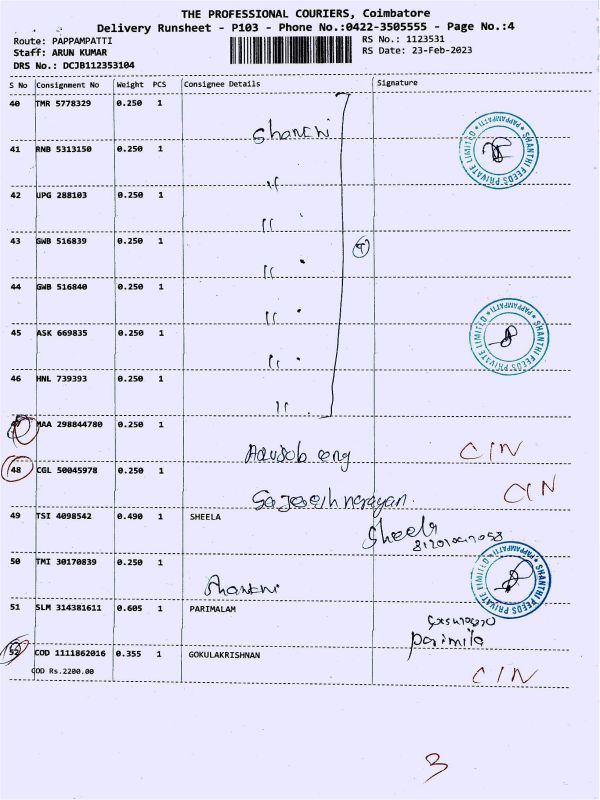 THE PROFESSIONAL COURIERS, Coimbatore
Delivery Runsheet - P103 - Phone No.:0422-3505555 - Page No.:4
Route: PAPPAMPATTI RS No.: 1123531
Staff: ARUN KUMAR RS Date: 23-Feb-2023
DRS No.: DCJB112353104
S No Consignment No Weight PCS Consignee Details Signature
40 TMR 5778329 0.250 1
Shanthi
SHANTHI FEEDS PRIVATE LIMITED * PAPPAMPATTI *
41 RNB 5313150 0.250 1
"
42 UPG 288103 0.250 1
"
43 GWB 516839 0.250 1
"
44 GWB 516840 0.250 1
"
SHANTHI FEEDS PRIVATE LIMITED * PAPPAMPATTI *
45 ASK 669835 0.250 1
"
46 HNL 739393 0.250 1
"
47 MAA 298844780 0.250 1
eng CIN
48 CGL 50045978 0.250 1
narayan CIN
49 TSI 4098542 0.490 1 SHEELA
Sheela
50 TMI 30170839 0.250 1
Shanthi
SHANTHI FEEDS PRIVATE LIMITED * PAPPAMPATTI *
51 SLM 314381611 0.605 1 PARIMALAM
Parimila
52 COD 1111862016 0.355 1 GOKULAKRISHNAN
COD Rs.2200.00 CIN
3